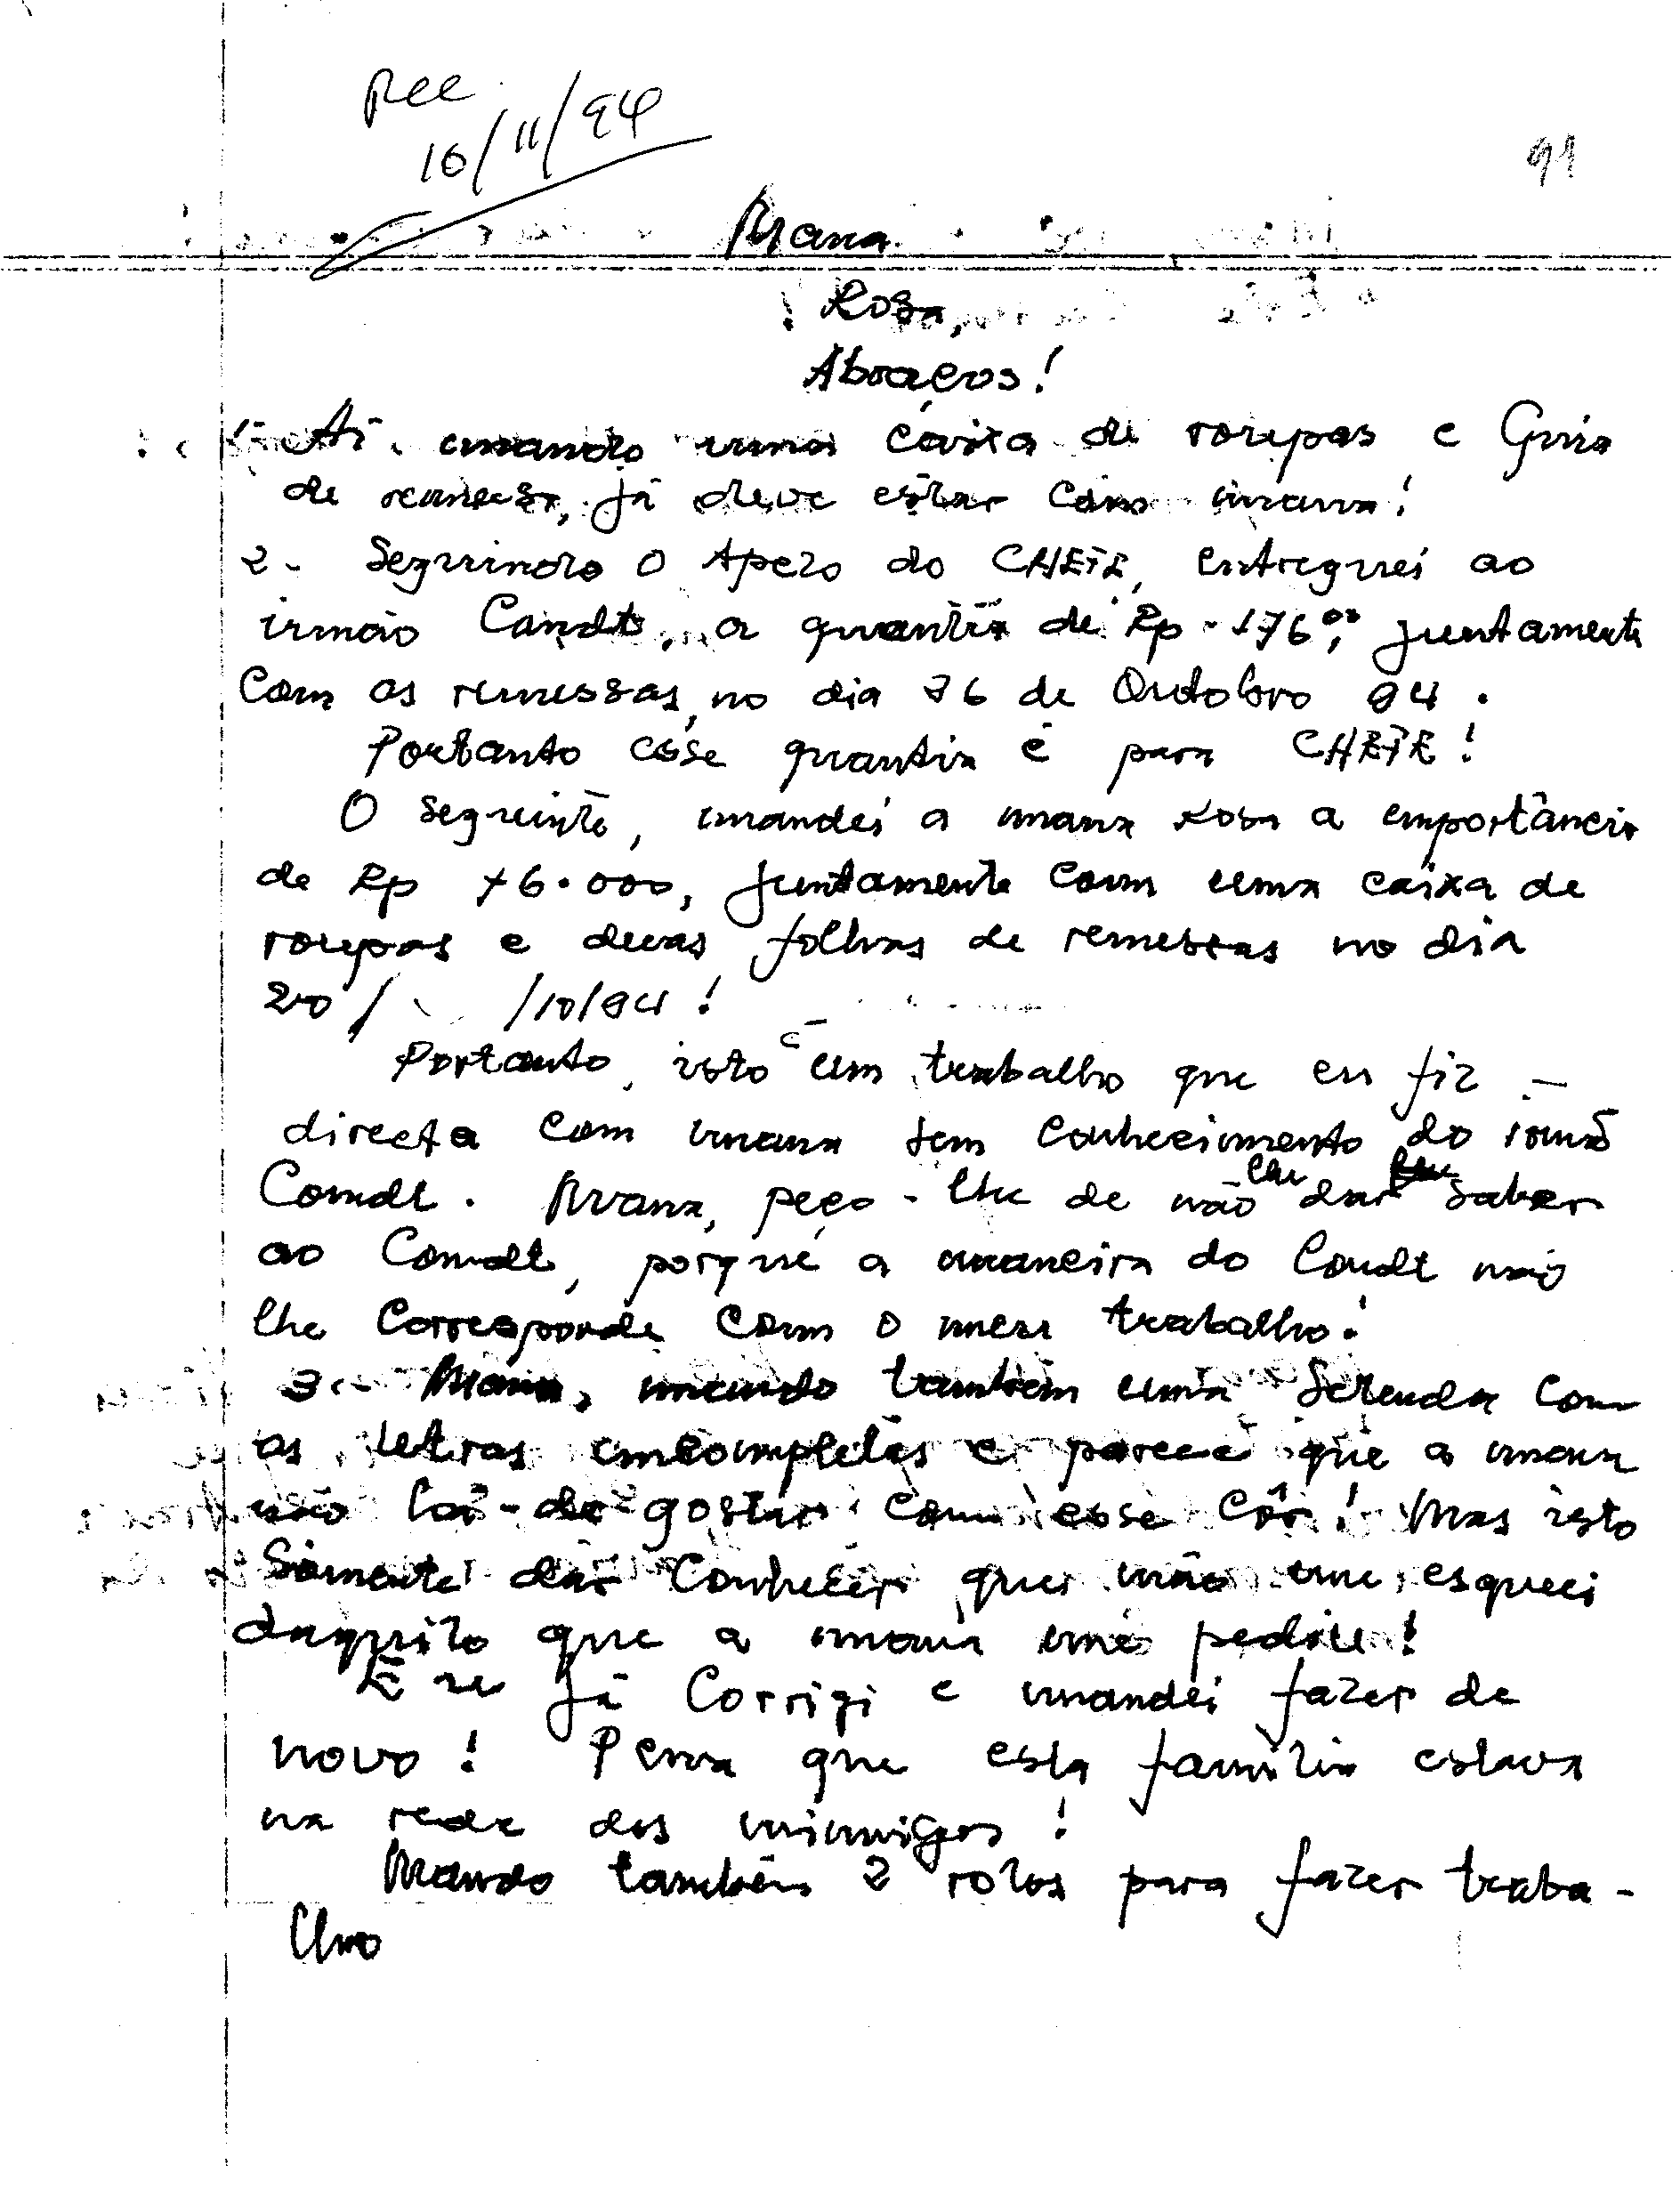 Rec
16/11/94
91
Mana
Rosa,
Abraços!
1- Aí mando uma caixa de roupas e Guia
de remessa, já deve estar com mana!
2- Seguindo o Apelo do CHEFE, entreguei ao
irmão Comdt, a quantia de Rp. 176,00 juntamente
com as remessas, no dia de Outobro 94.
Portanto esse quantia é para CHEFE!
O seguinte, mandei a mana Rosa a emportância
de Rp 76.000, juntamente com uma caixa de
roupas e duas folhas de remessas no dia
20/ /10/94!
Portanto, isto é um trabalho que eu fiz -
directa com mana sem conhecimento do irmão
Comdt. Mana, peço-lhe de não lhe dar saber
ao Comdt, porque a maneira do Comdt não
lhe corresponde com o meu trabalho!
3- Mana, mando também uma com
as letras imcompletas e parece que a mana
não há-de gostar com esse côr! Mas isto
sómente dar conhecer que não me esqueci
daquilo que a mana me pediu!
E eu já corrigi e mandei fazer de
novo! Pena que esta família estava
na rede dos inimigos!
Mando também 2 rolos para fazer traba-
lho